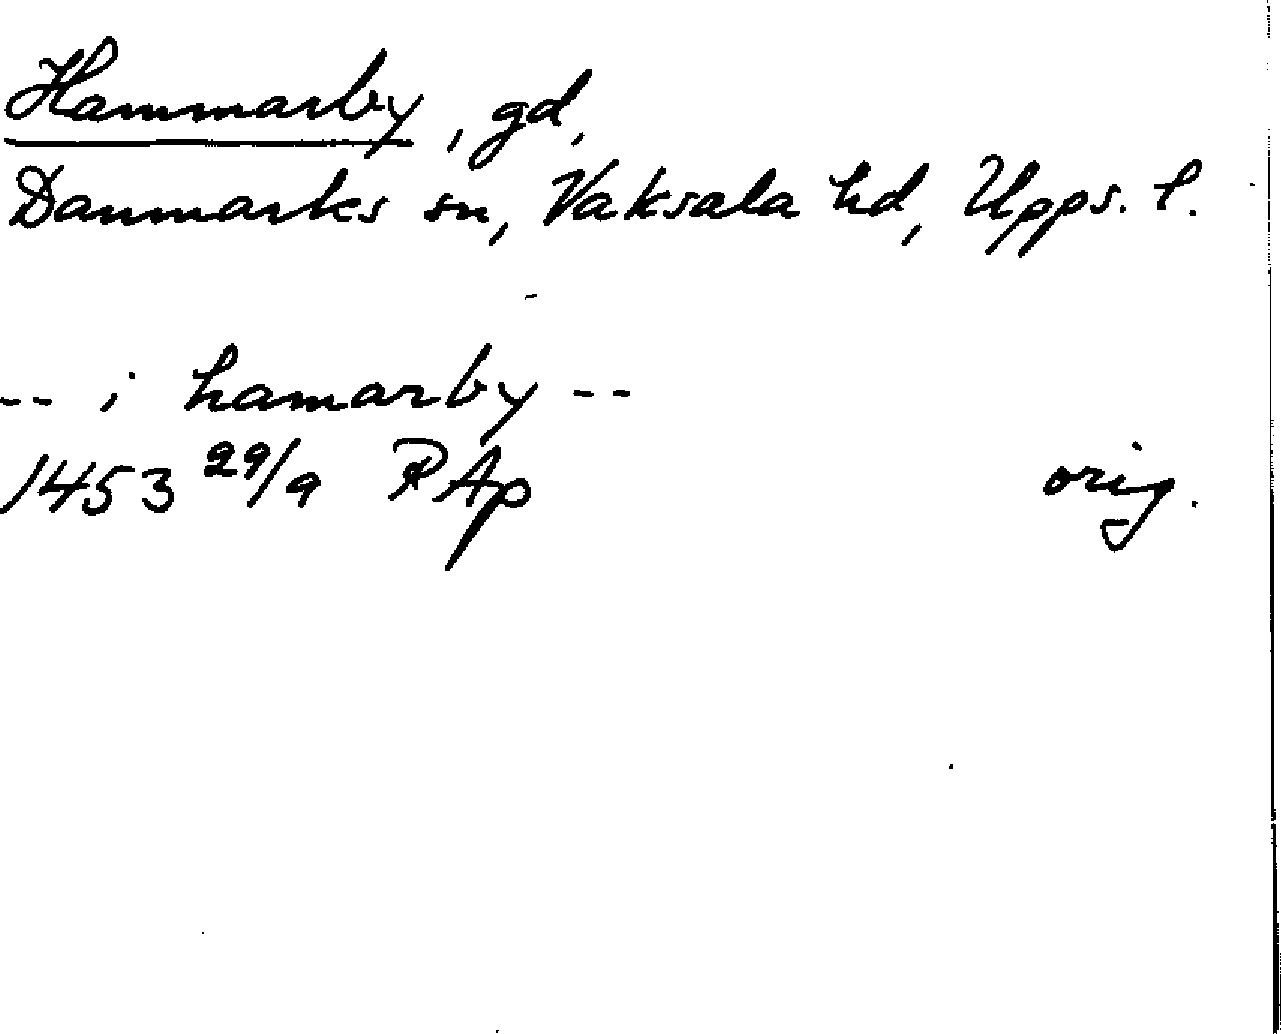 Hammarby, gd,
Danmarks sn, Vaksala hd, Upps. l.
-- i hamarby --
1453 29/9 RAp orig.